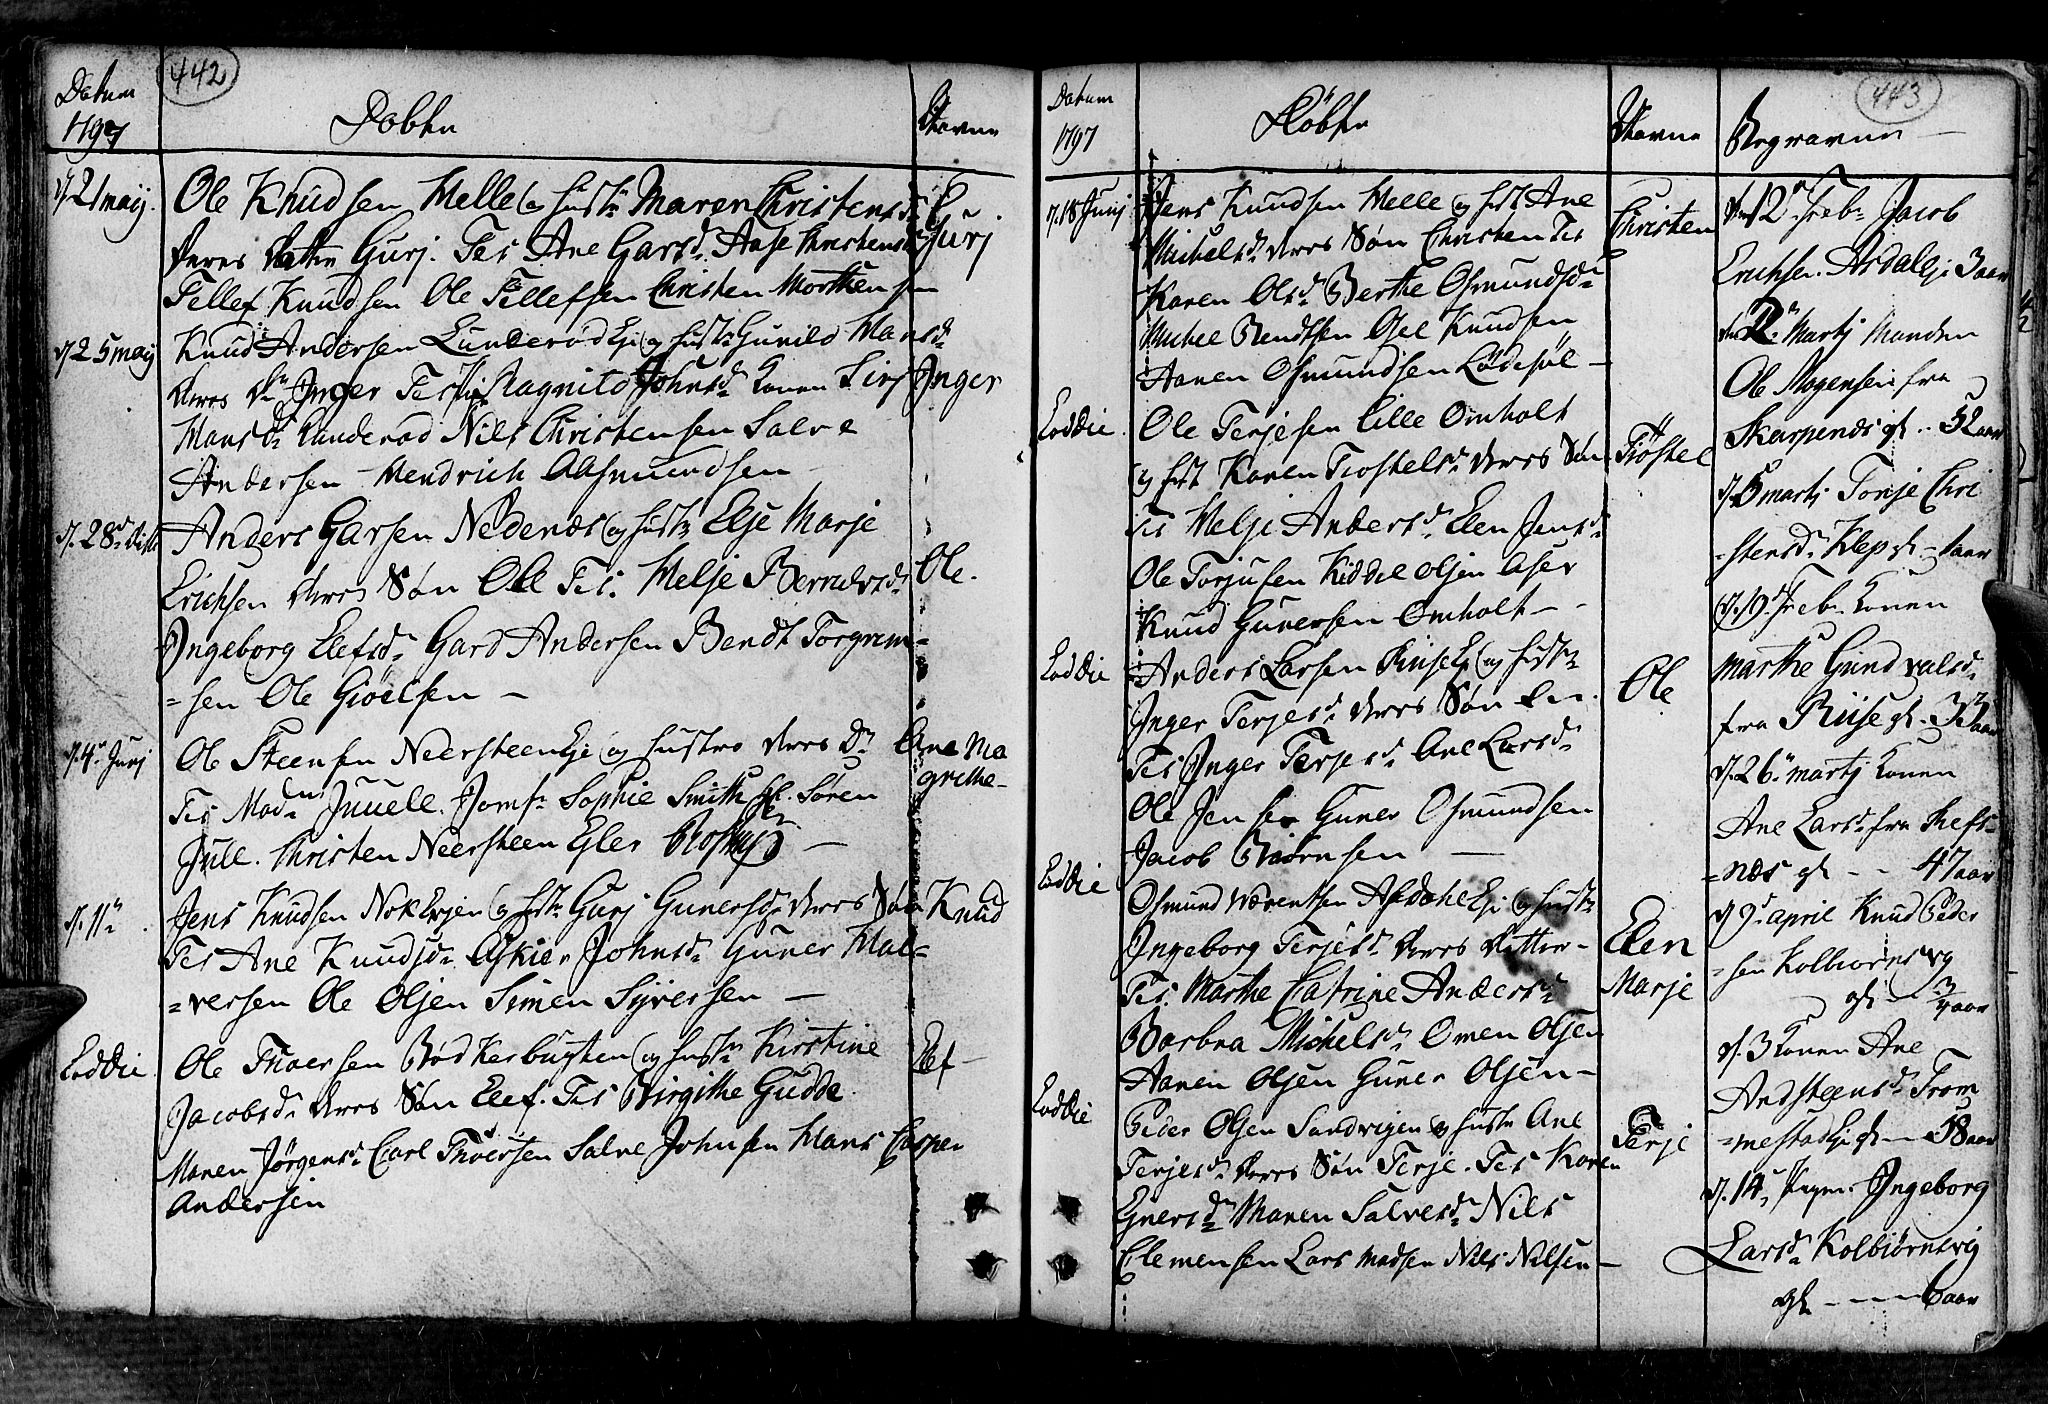 442
Datum
1797
Døbte
Navne
d. 21 maij.
Ole Knudsen Helle og hustr Maren Christensd.
Deres datter Gurj. Tes Ane Garsd. Aase Christensd.
Gurj.
Tellef Knudsen Ole Tellefsen Christen Morthensen
d. 25 maij
Knud Andersen Lunderød Eje og hustr Gunild Hansd.
deres Dr Inger Tes Ragnild Johnsd. konen Sirj
Inger
Hansd. Lunderød Nils Christensen Salve
Andersen Hendrich Aasmundsen
d. 28 dito
Anders Garsen Nedenæs og hustr Elje Marje
Erichsen deres Søn Ole Tes. Helje Berruldsd.
Ole.
Ingeborg Elefsd. Gard Andersen Bendt Torgrim=
=sen Ole Gioelsen –
d. 4 Junj
Ole Steensen Neersteen Eje og hustro deres Dr
Ane Ma
grethe
Tes Madn Juuell. Jomfr Sophie Smith hr. Søren
Jull. Christen Neersteen Ejler
d. 11
Jens Knudsen Nok Erjen og hstr Gurj Gunersd. deres Søn
Knud
Tes Ane Knudsd. Askier Johnsd. Guner Hal=
=versen Ole Olsen Simen Syversen –
Eoddie
Ole Thoersen Bødkerbugten og hustr Kirstine
Elef
Jacobsd. deres Søn Elef. Tes Birgithe Gudde
Maren Jørgensd. Carl Thoersen Salve Johnsen Hans Casper
Andersen
443
Datum
1797
Døbte
Navne
Begravne
d. 18 Junj
Jens Knudsen Helle og hst Ane
Michelsd. deres Søn Christen Tes
Christen
Karen Olsd. Berthe Osmundsd.
Michel Bendtsen Ojel Knudsen
Aanen Osmundsen Lødesøl –
Eoddie.
Ole Terjesen Lille Omholt
og hst Karen Trostelsd. deres Søn
Trøstel
Tes Helje Andersd. Elen Jensd.
Ole Torjusen Kiddel Olsen Aser
Knud Gunersen Omholt –
Eoddie
Anders Larsen Riise Eje og hustr
Inger Terjesd. deres Søn
Ole
Tes Inger Terjesd. Ane Larsd.
Ole Jensen Guner Osmundsen
Jacob Biørnsen –
Eoddie
Osmund Værentsen Asdahl Eje og hustr
Ingeborg Terjesd. deres Ditter –
Elen
Marje
Tes. Marthe Catrine Andersd.
Barbra Michelsd. Omen Olsen
Aanen Olsen Guner Olsen –
Eoddie
Peder Olsen Sandvigen og hustr Ane
Terjesd. deres Søn Terje. Tes Karen
Terje
Egnersd. Maren Salvesd. Nils
Clemensen Lars Madsen Nils Nilsen –
den 12 Feb. Jacob
Erichsen. Asdal Eje 3 aar
den 2 Martj Manden
Ole Mogensen fra
Skarpenæs gl. 52 aar
d. 5 martj Tonje Chri
=stensd. Klep gl – 1 aar
d. 19 Feb. Konen
Marthe Gundvalsd.
fra Riise gl. 33 aar
d. 26 martj Konen
Ane Larsd. fra Refs=
=næs gl – – 47 aar
d. 9 april Knud Peder
=sen Kolbiørnsvig
gl – 3/4 aar
d. 3 Konen Ane
Andsteensd. Trom
=mestad Eje gl – 58 aar
d. 14 Ingeborg
Larsd. Kolbiørnsvig
gl – – – 6 aar